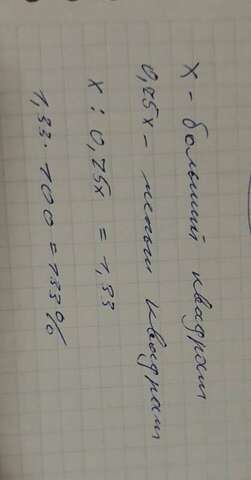 x - больший квадрат
0,75x - меньш квадрат
x : 0,75x = 1,33
1,33 · 100 = 133%